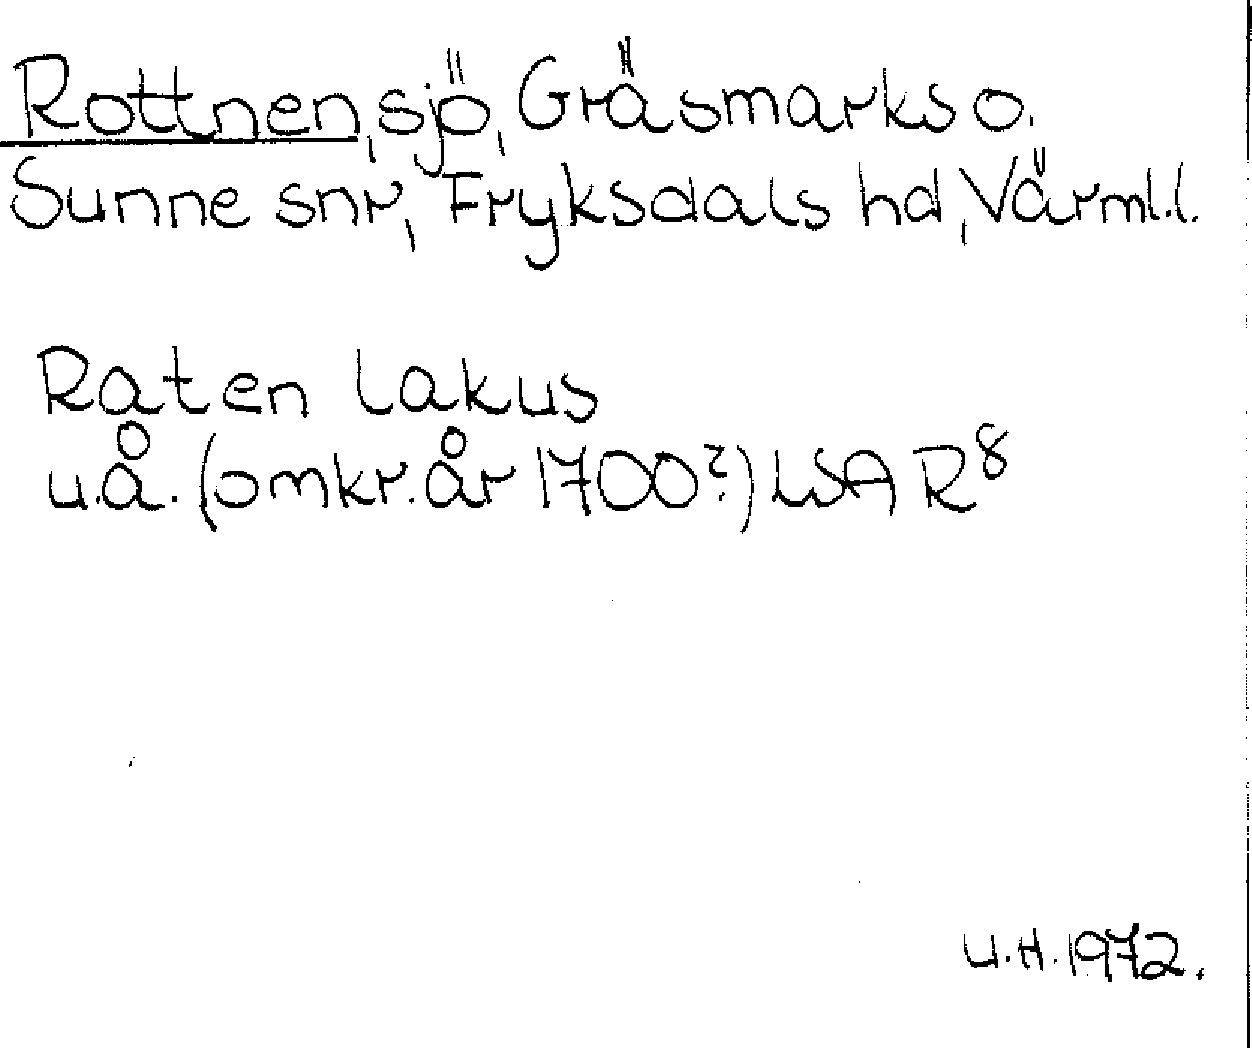 Rottnen, sjö, Gräsmarks o.
Sunne snr, Fryksdals hd, Värml.l.
Raten lakus
u.å. (omkr. år 1700?) LSA R8
U.H. 1972.